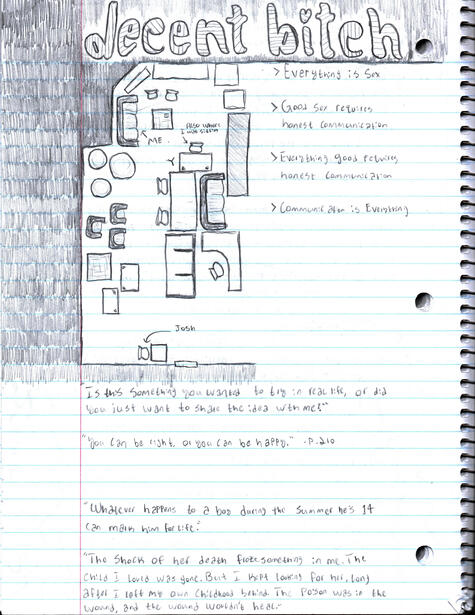 decent bitch
> Everything is Sex
> Good sex requires
honest communication
> Everything good requires
honest communication
> Communication is Everything
ME.
Also where
I was sittin
Josh
"Is this something you wanted to try in real life, or did
you just want to share the idea with me?"
"You can be right, or you can be happy." -p.210
"Whatever happens to a boy during the summer he's 14
can mark him for life."
"The shock of her death froze something in me. The
child I loved was gone. But I kept looking for her, long
after I left my own childhood behind. The Poison was in the
wound, and the wound wouldn't heal."